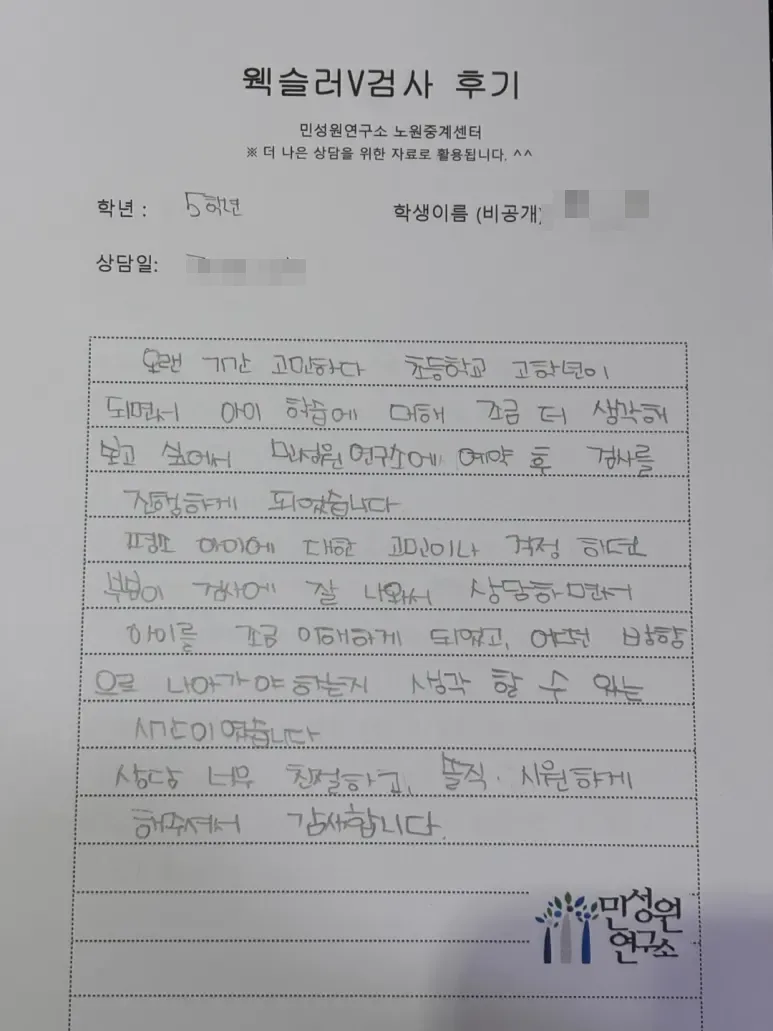 웩슬러V검사 후기
민성원연구소 노원중계센터
※ 더 나은 상담을 위한 자료로 활용됩니다. ^^
학년 : 5학년
학생이름 (비공개)
상담일:
오랜 기간 고민하다 초등학교 고학년이
되면서 아이 학습에 대해 조금 더 생각해
보고 싶어서 민성원연구소에 예약 후 검사를
진행하게 되었습니다
평소 아이에 대한 고민이나 걱정 하던
부분이 검사에 잘 나와서 상담하면서
아이를 조금 이해하게 되었고, 어떤 방향
으로 나아가야 하는지 생각 할 수 있는
시간이였습니다
상담 너무 친절하고, 솔직·시원하게
해주셔서 감사합니다.
민성원
연구소